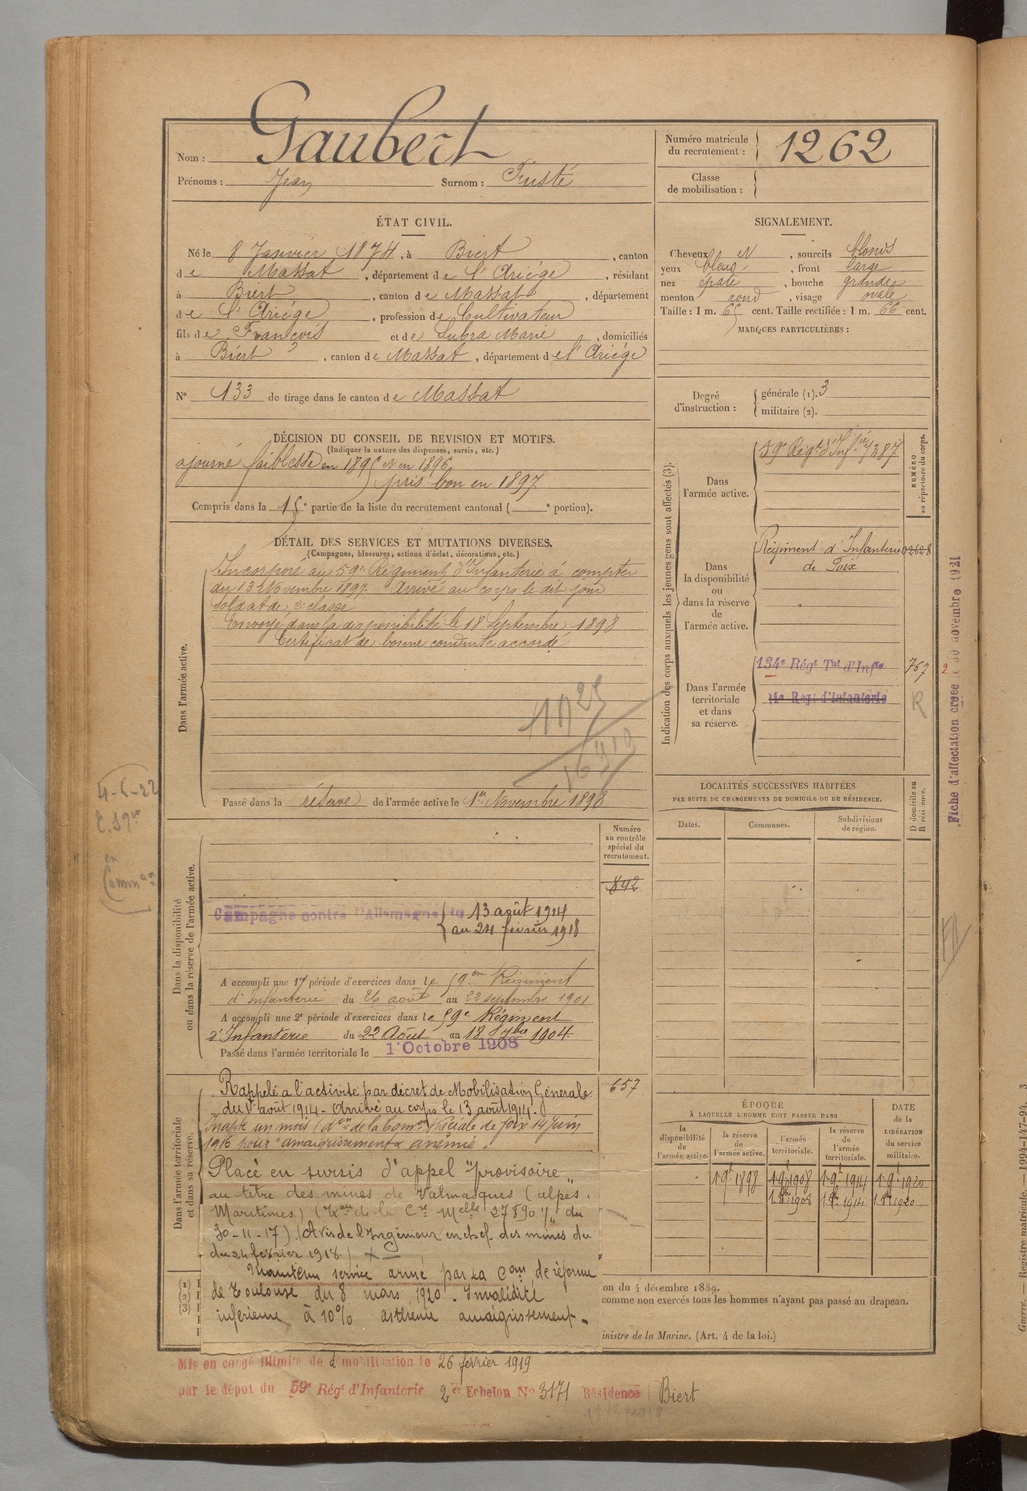 Nom : Gaubert
Prénoms : Jean Surnom : Fusté
Numéro matricule du recrutement : 1262
Classe de mobilisation :
ÉTAT CIVIL.
Né le 8 Janvier 1874, à Biert, canton
de Massat, département de l'Ariége, résidant
à Biert, canton de Massat, département
de l'Ariége, profession de Cultivateur
fils de François et de Subra Marie, domiciliés
à Biert, canton de Massat, département de l'Ariége
N° 133 de tirage dans le canton de Massat
SIGNALEMENT.
Cheveux N, sourcils blonds
yeux bleus, front large
nez épaté, bouche grande
menton rond, visage ovale
Taille : 1 m. 65 cent. Taille rectifiée : 1 m. 66 cent.
MARQUES PARTICULIÈRES :
Degré d'instruction : générale (1). 3
militaire (2).
DÉCISION DU CONSEIL DE REVISION ET MOTIFS.
(Indiquer la nature des dispenses, sursis, etc.)
ajourné faiblesse en 1895 et en 1896
pris bon en 1897
Compris dans la 1e partie de la liste du recrutement cantonal ( e portion).
DÉTAIL DES SERVICES ET MUTATIONS DIVERSES.
(Campagnes, blessures, actions d'éclat, décorations, etc.)
Dans l'armée active.
Incorporé au 59e Régiment d'Infanterie à compter
du 13 Novembre 1897. Arrivé au corps le dit jour
soldat de 2e classe
Envoyé dans la disponibilité le 18 Septembre 1898
Certificat de bonne conduite accordé
Passé dans la réserve de l'armée active le 1er Novembre 1898
Indication des corps auxquels les jeunes gens sont affectés (3).
NUMÉRO au répertoire du corps.
Dans l'armée active.
59e Régt d'Infie 7287
Dans la disponibilité ou dans la réserve de l'armée active.
Régiment d'Infanterie 02628
de Foix
Dans l'armée territoriale et dans sa réserve.
134e Régt Tal d'Infie 767
14e Regt d'Infanterie R
Fiche d'affectation créée le 30 novembre 1921
LOCALITÉS SUCCESSIVES HABITÉES
PAR SUITE DE CHANGEMENTS DE DOMICILE OU DE RÉSIDENCE.
Dates. Communes. Subdivisions de région. D domicile ou R résidence.
Numéro au contrôle spécial du recrutement.
842
4-6-22
Dans la disponibilité ou dans la réserve de l'armée active.
Campagne contre l'Allemagne du 13 août 1914
au 24 février 1918
A accompli une 1re période d'exercices dans le 59em Régiment
d'Infanterie du 26 août au 22 septembre 1901
A accompli une 2e période d'exercices dans le 59e Régiment
d'Infanterie du 22 Août au 18 7bre 1904.
Passé dans l'armée territoriale le 1er Octobre 1908
Dans l'armée territoriale et dans sa réserve.
Rappelé à l'activité par décret de Mobilisation Générale 657
du 1er août 1914. Arrivé au corps le 13 août 1914.
Inapte un mois (don de la Comon spéciale de Foix 14 juin
1916 pour "amaigrissement & anémie".
Placé en sursis d'appel "provisoire"
au titre des mines de Valmasques (alpes.
Maritimes) du
30-11-17) (Avis de l'Ingénieur en chef des mines du
du 24 février 1918)
Maintenu service armé par la Com de réforme
de Toulouse du 8 mars 1920. Invalidité
inférieure à 10% asthénie amaigrissement.
ÉPOQUE
À LAQUELLE L'HOMME DOIT PASSER DANS
la disponibilité de l'armée active. la réserve de l'armée active. l'armée territoriale. la réserve de l'armée territoriale. DATE de la LIBÉRATION du service militaire.
1 9bre 1898 1 9bre 1908 1 9bre 1914 1 9bre 1920
1 8bre 1908 1 8bre 1914 1 8bre 1920
on du 4 décembre 1889.
comme non exercés tous les hommes n'ayant pas passé au drapeau.
inistre de la Marine. (Art. 4 de la loi.)
Mis en congé illimité de démobilisation le 26 février 1919
par le dépôt du 59e Régt d'Infanterie 2e Echelon N° 3171 Résidence Biert
Guerre. — Registre matricule. — 1994-147-94. 3